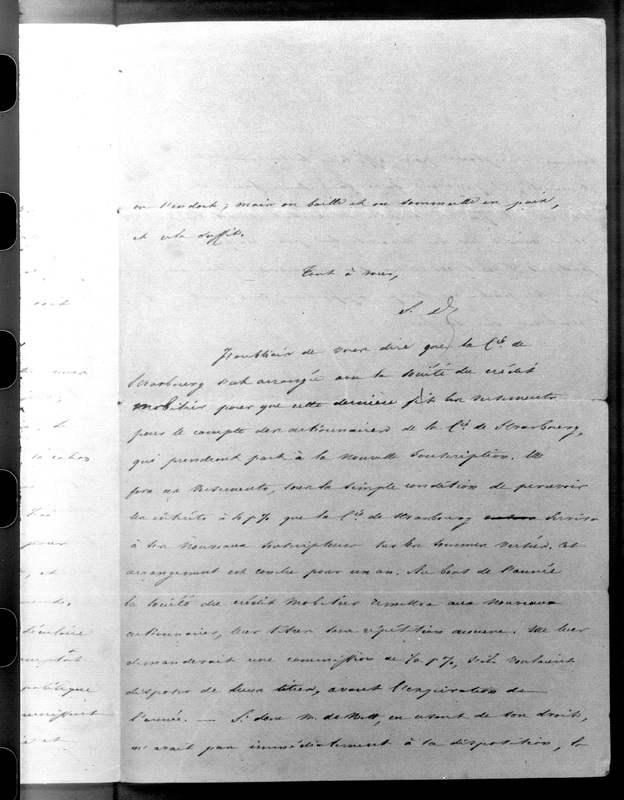 on s'endort; mais on baille et on sommeille en paix,
et cela suffit.
Tout à vous,
S.
J'oubliais de vous dire que la Cie de
Strasbourg s'est arrangée avec la société du crédit
mobilier pour que cette dernière fit les versements
pour le compte des actionnaires de la Cie de Strasbourg,
qui prendront part à la nouvelle souscription. Elle
fera ces versements, sous la simple condition de percevoir
les intérêts à 4 p % que la Cie de Strasbourg servira
à ses nouveaux souscripteurs sur les sommes versées. Cet
arrangement est conclu pour un an. Au bout de l'année
la société du crédit mobilier remettra aux nouveaux
actionnaires, leurs titres sans répétition aucune. Elle leur
demanderait une commission de p %, s'ils voulaient
disposer de leurs titres, avant l'expiration de
l'année. — Si donc M. de Witt, en usant de son droit,
n'avait pas immédiatement à sa disposition, la
pour
et
politique
et